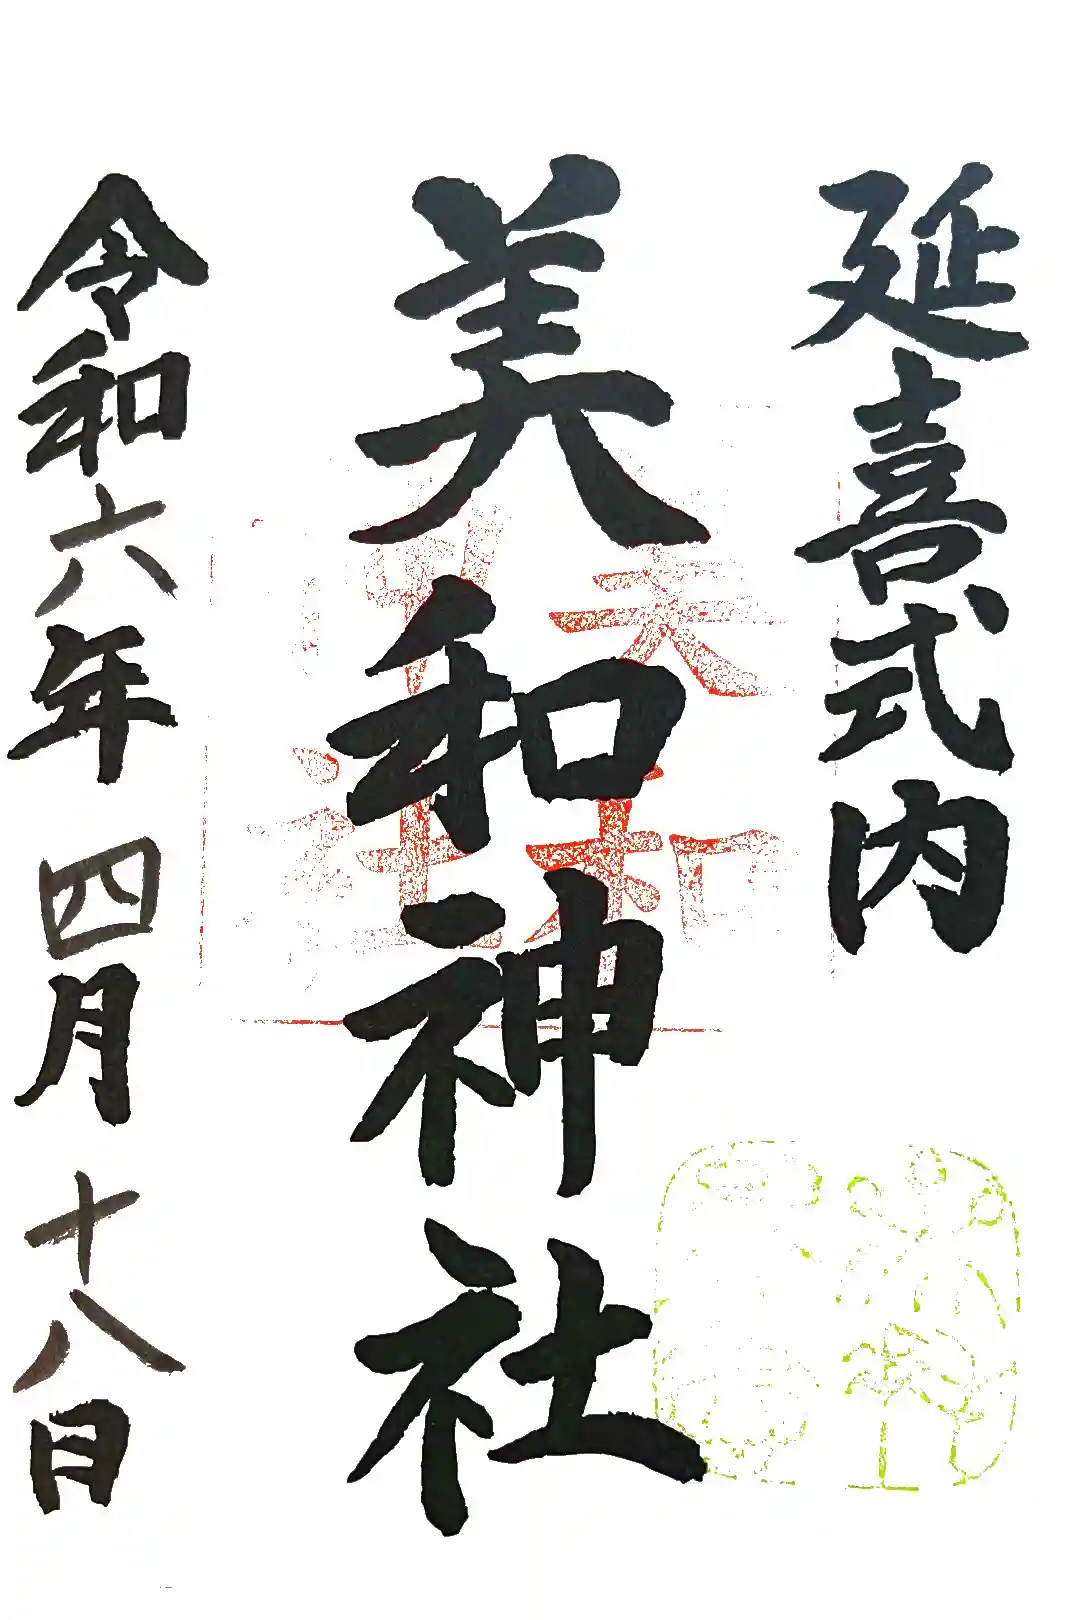 延喜式内
美和神社
令和六年四月十八日
美和神社